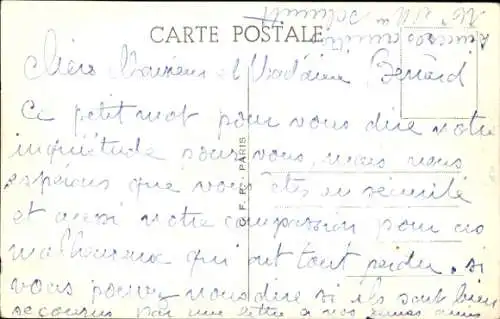 CARTE POSTALE
Chers Monsieur et Madame Bernard
Ce petit mot pour vous dire notre
inquiétude pour vous, mais nous
espérons que vous êtes en sécurité
et aussi notre compassion pour ces
malheureux qui ont tout perdu. si
vous pouvez nous dire si ils sont bien
secourus par une lettre a nos amis
F. R. PARIS